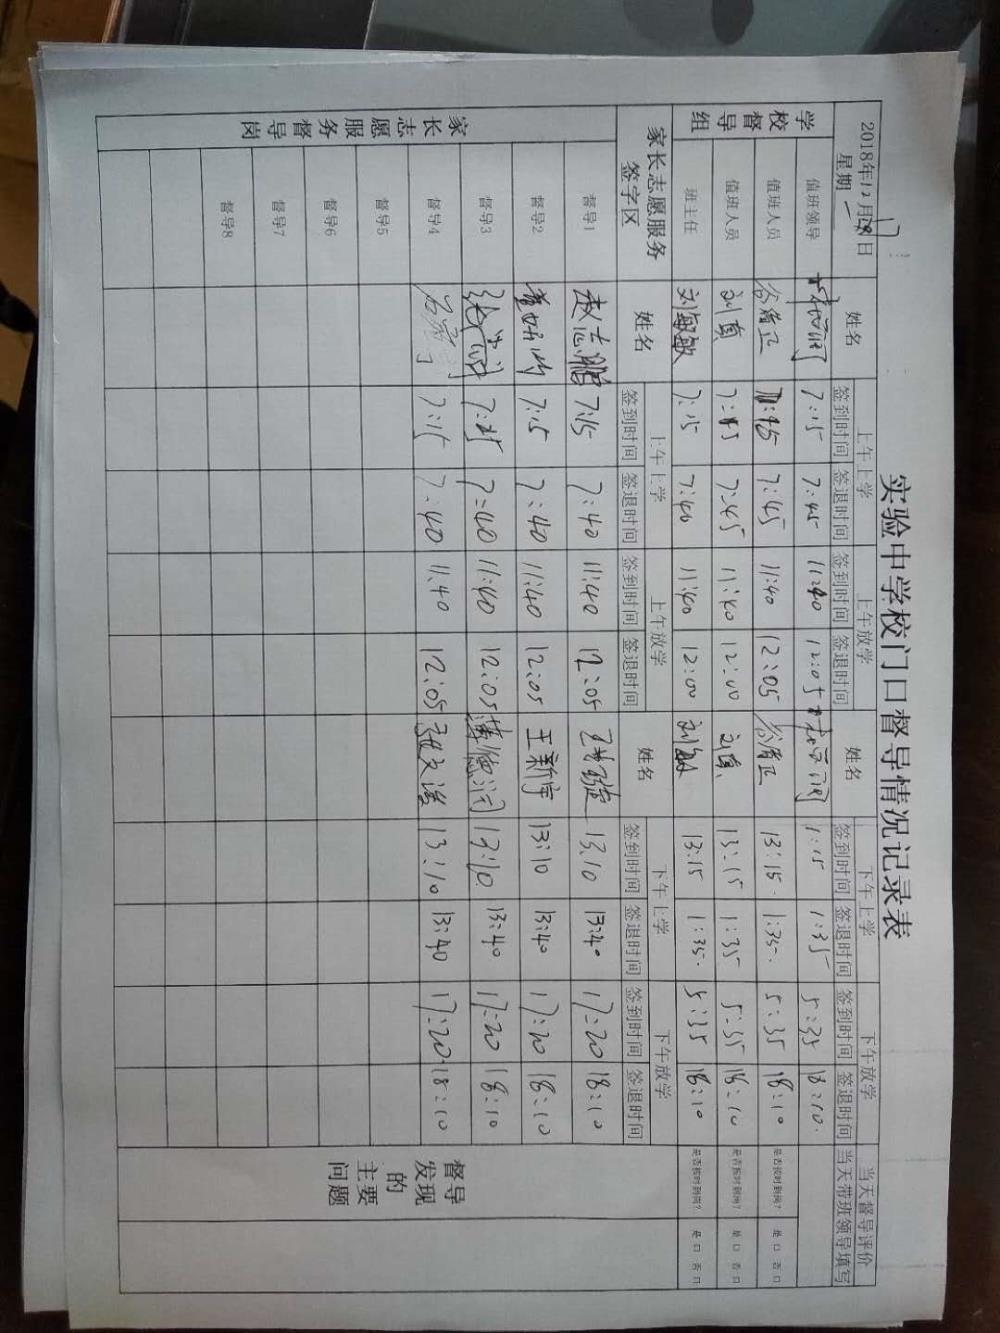 实验中学校门口督导情况记录表
2018年12月 日
星期一
姓名 上午上学 上午放学 姓名 下午上学 下午放学 当天督导评价
签到时间 签退时间 签到时间 签退时间 签到时间 签退时间 签到时间 签退时间 当天带班领导填写
学校督导组
值班领导 7:15 7:45 11:40 12:05 1:15 1:35 5:35 18:10.
值班人员 谷清正 7:45 11:40 12:05 谷清正 13:15. 1:35. 5:35 18:10 是否按时到岗? 是口 否口
值班人员 刘真 7:45 11:40 12:00 刘真 13:15 1:35 5:35 18:10 是否按时到岗? 是口 否口
班主任 刘敏敏 7:15 7:40 11:40 12:00 刘敏 13:15 1:35. 5:35 18:10 是否按时到岗? 是口 否口
家长志愿服务
签字区
姓名 上午上学 上午放学 姓名 下午上学 下午放学
签到时间 签退时间 签到时间 签退时间 签到时间 签退时间 签到时间 签退时间
家长志愿服务督导岗
督导1 赵志鹏 7:15 7:40 11:40 12:05 13:10 13:40 17:20 18:10
督导2 7:15 7:40 11:40 12:05 王新宇 13:10 13:40 17:20 18:10
督导3 7:40 11:40 12:05 13:40 17:20 18:10
督导4 7:15 7:40 11:40 12:05 13:10 13:40 17:20 18:10
督导5
督导6
督导7
督导8
督导
发现
的
主要
问题